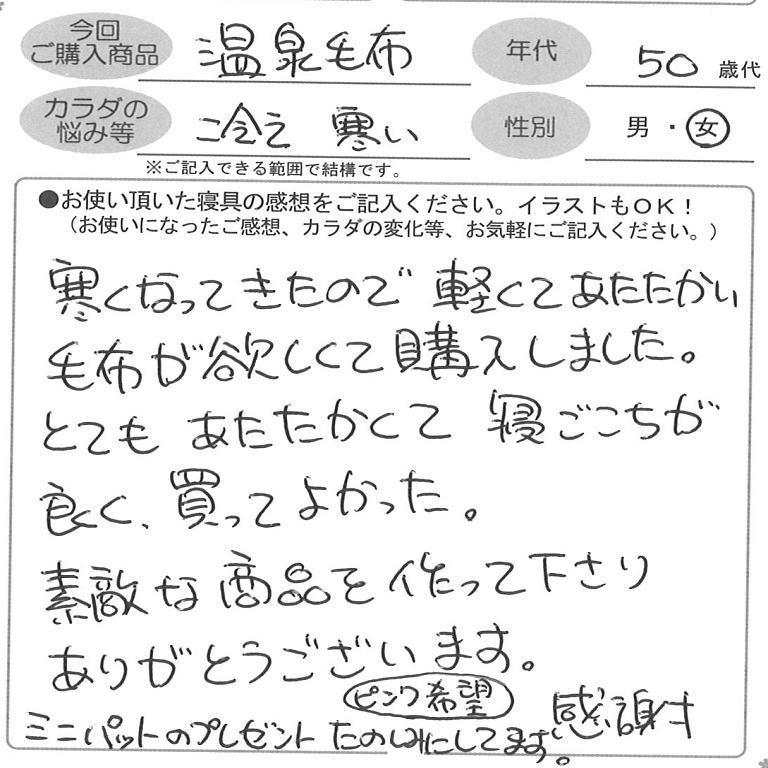 今回
ご購入商品 温泉毛布 年代 50 歳代
カラダの
悩み等 冷え 寒い 性別 男・女
※ご記入できる範囲で結構です。
●お使い頂いた寝具の感想をご記入ください。イラストもOK！
（お使いになったご感想、カラダの変化等、お気軽にご記入ください。）
寒くなってきたので 軽くてあたたかい
毛布が欲しくて購入しました。
とても あたたかくて 寝ごこちが
良く、買ってよかった。
素敵な商品を作って下さり
ありがとうございます。
ピンク希望
ミニパットのプレゼント たのしみにしてます。 感謝